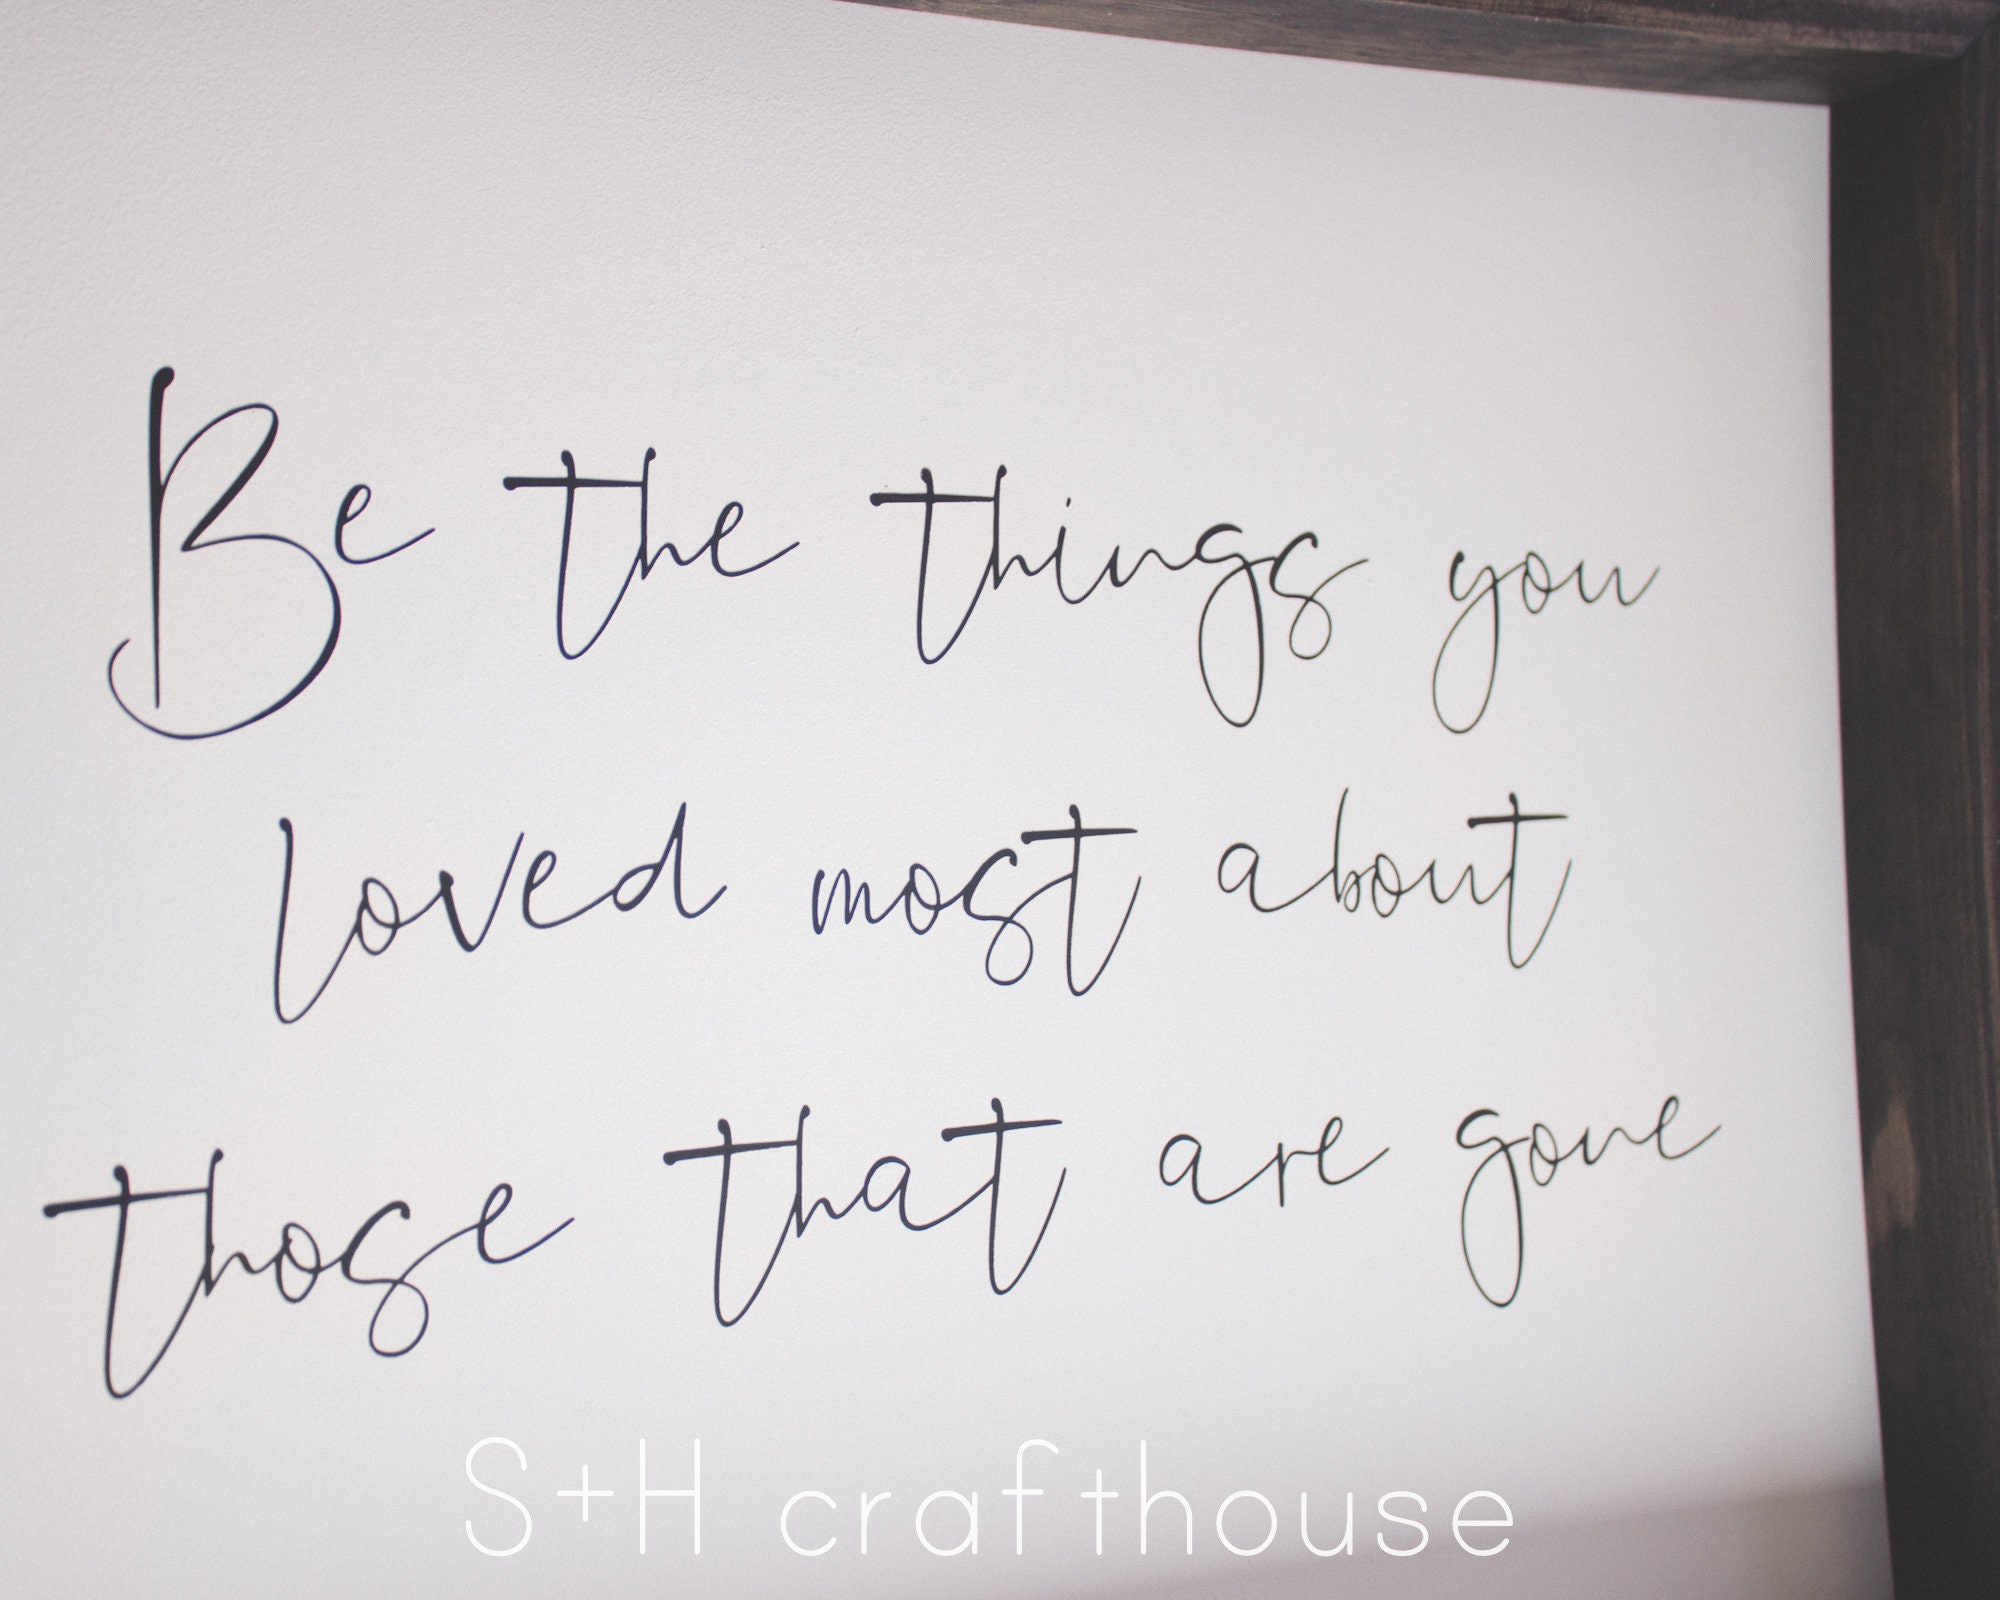 Be the things you
loved most about
those that are gone
S+H crafthouse